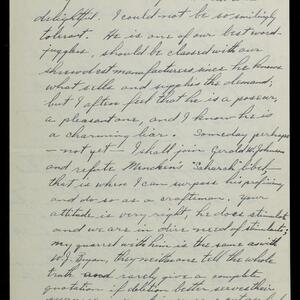 delightful. I could not be so smilingly
tolerant. He is one of our best word-
jugglers, should be classed with our
shrewdest manufacturers since he knows
what sells and supplies the demand;
but I often feel that he is a poseur,
a pleasant one, and I know he is
a charming liar. Someday perhaps
— not yet — I shall join Gerald W. Johnson
and refute Mencken's "Saharah libel" —
that is when I can surpass his profinity
and do so as a craftsman. Your
attitude is very right, he does stimulate
and we are in dire need of stimulate;
my quarrel with him is the same as with
W.J. Bryan, they neither one tell the whole
truth and rarely give a complete
quotation if deletion better serves their